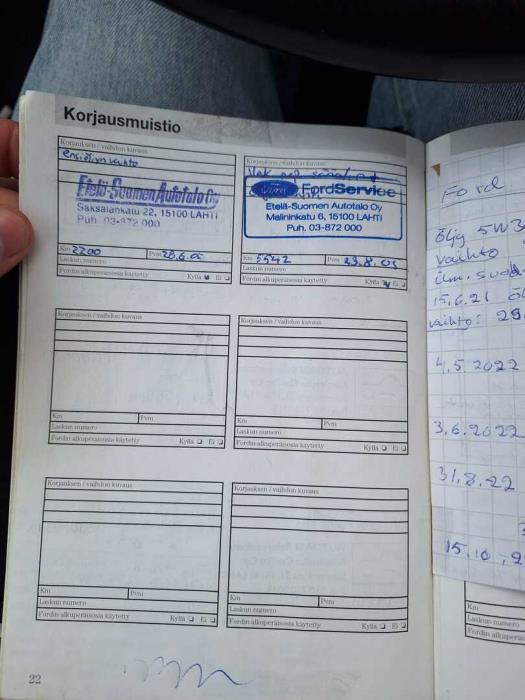 Korjausmuistio
Korjauksen / vaihdon kuvaus
ensiöljyn vaihto
Etelä-Suomen Autotalo Oy
Saksalankatu 22, 15100 LAHTI
Puh. 03-872 000
Km 2200 Pvm 28.6.05
Laskun numero
Fordin alkuperäisosia käytetty Kyllä Ei
Korjauksen / vaihdon kuvaus
Ford FordService
Etelä-Suomen Autotalo Oy
Malininkatu 6, 15100 LAHTI
Puh. 03-872 000
Km 5542 Pvm 29.8.05
Laskun numero
Fordin alkuperäisosia käytetty Kyllä Ei
Korjauksen / vaihdon kuvaus
Km Pvm
Laskun numero
Fordin alkuperäisosia käytetty Kyllä Ei
Korjauksen / vaihdon kuvaus
Km Pvm
Laskun numero
Fordin alkuperäisosia käytetty Kyllä Ei
Korjauksen / vaihdon kuvaus
Km Pvm
Laskun numero
Fordin alkuperäisosia käytetty Kyllä Ei
Korjauksen / vaihdon kuvaus
Km Pvm
Laskun numero
Fordin alkuperäisosia käytetty Kyllä Ei
22
Ford
öljy 5W3
vaihto
ilm. suod
15.6.21
vaihto: 29
4.5.2022
3.6.2022
31.8.22
15.10
Km
Laskun numero
Fordin alkuperäis